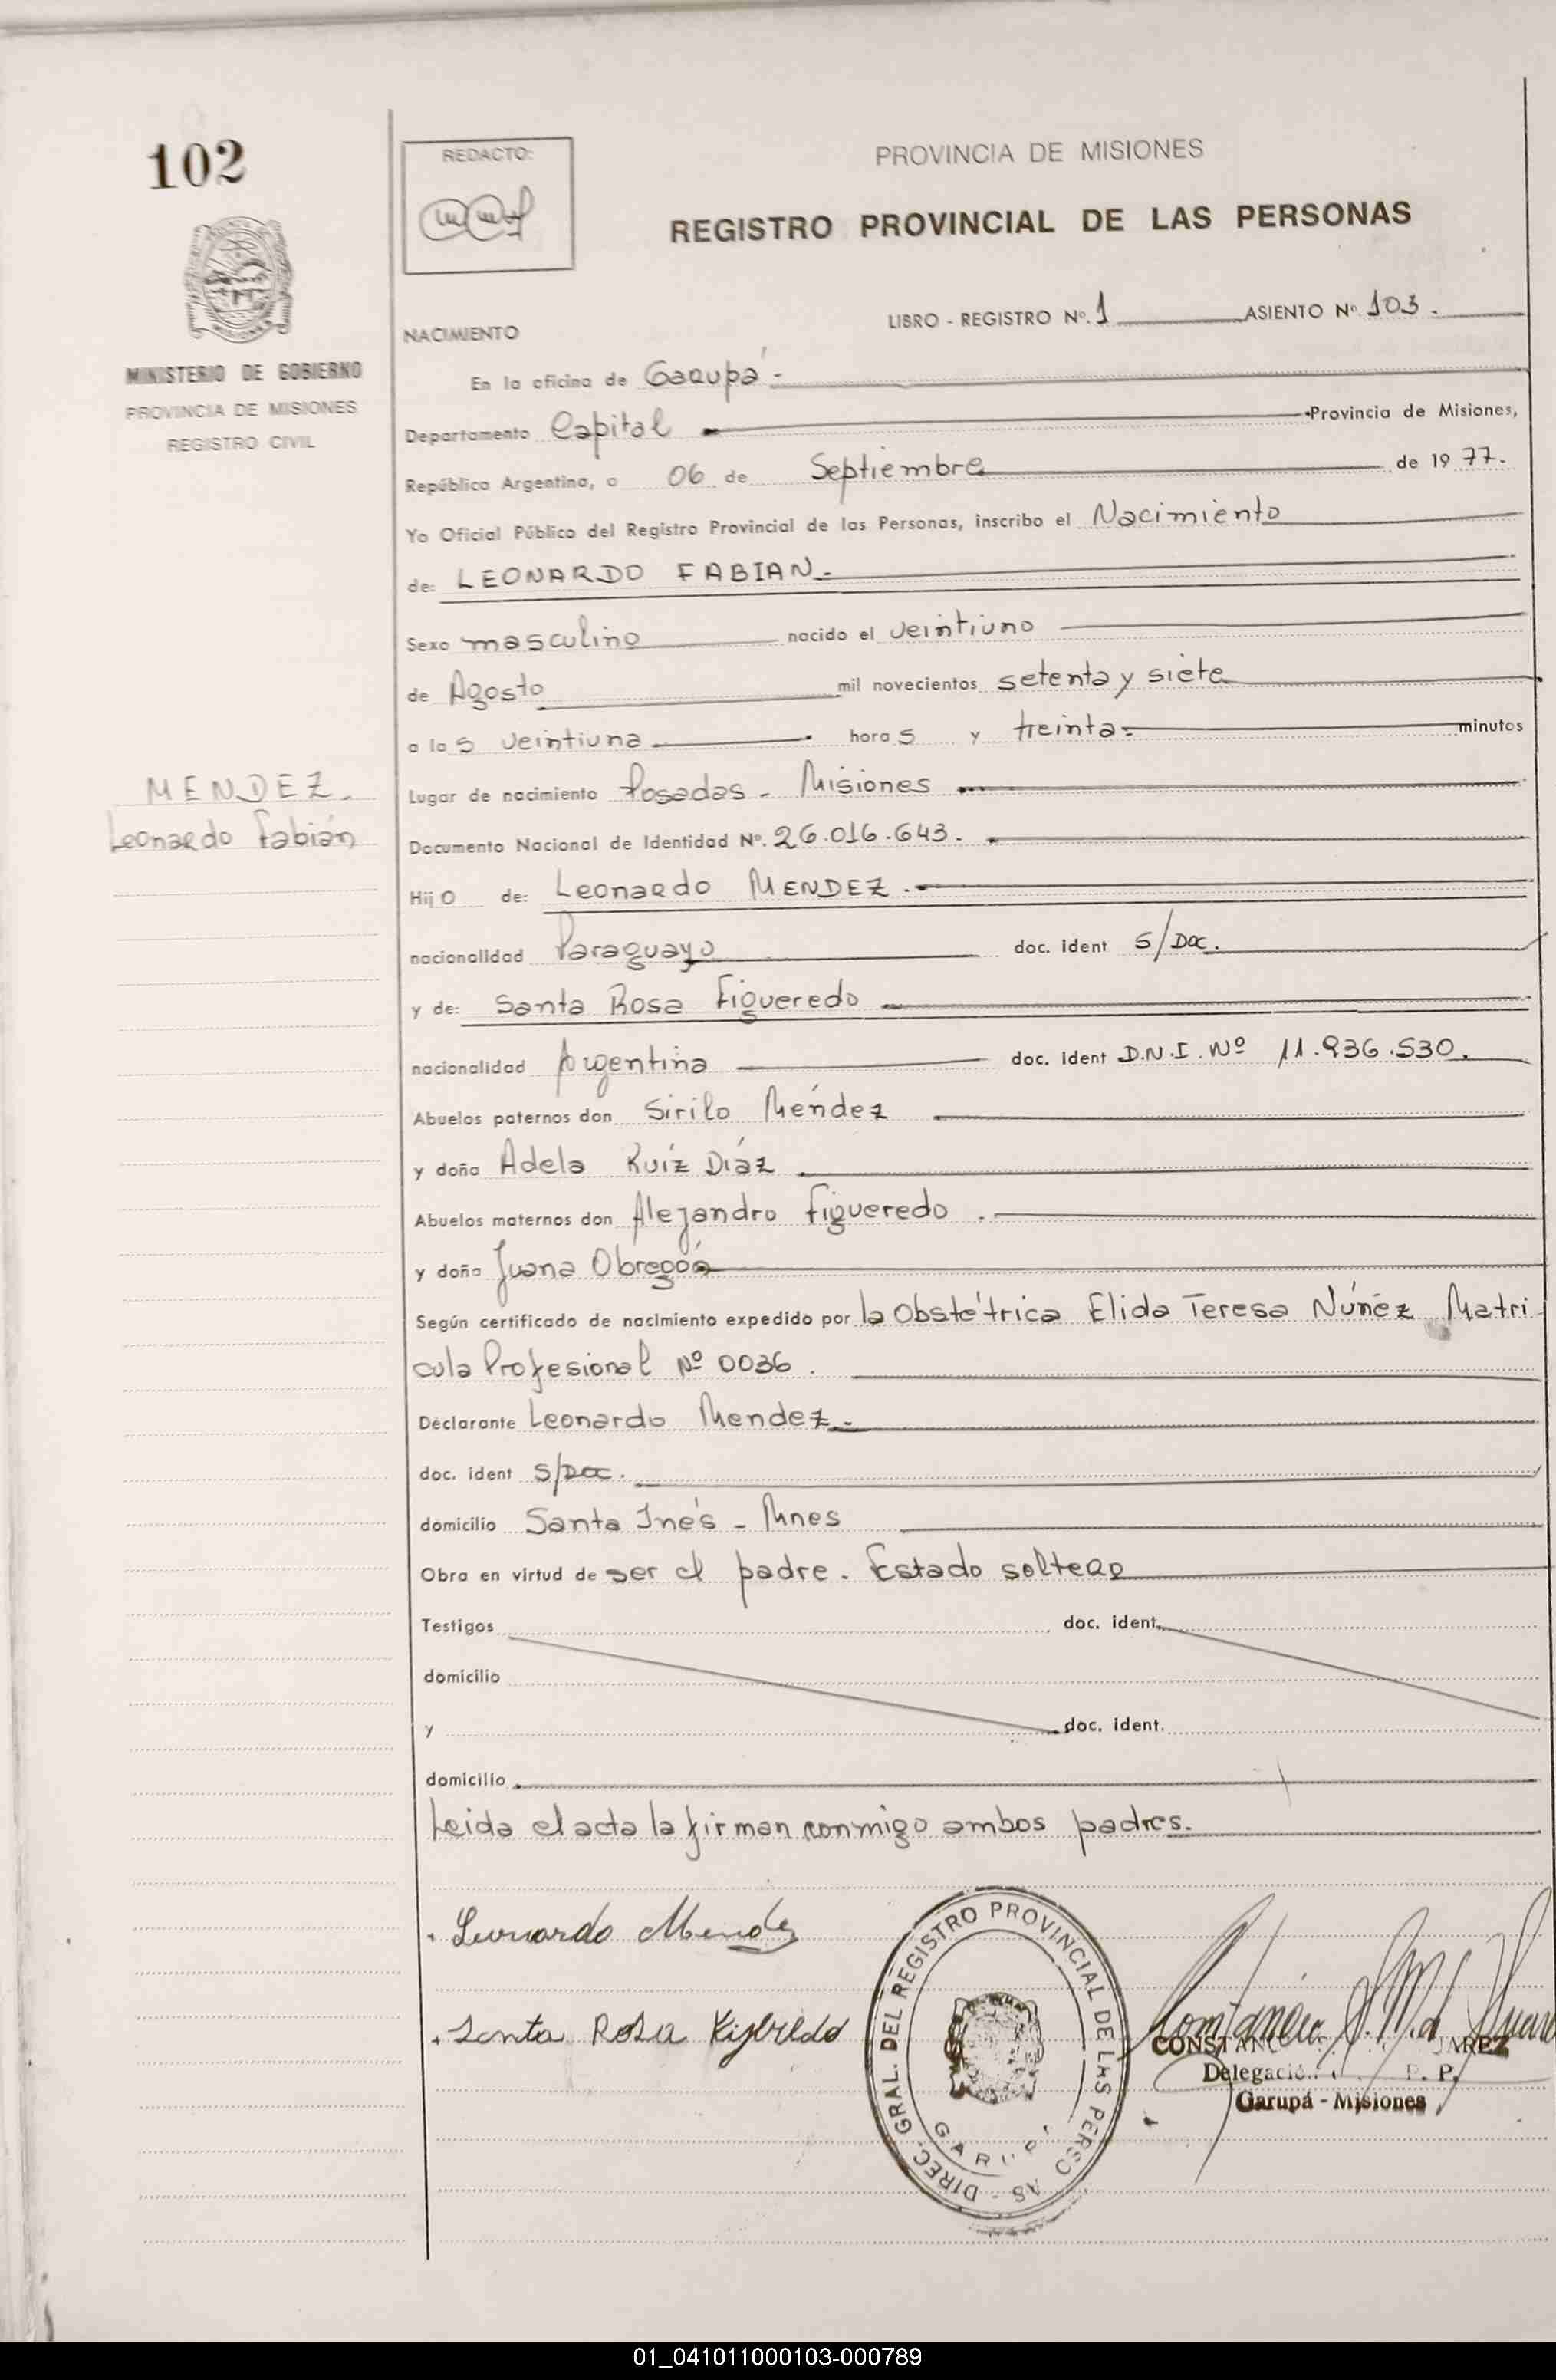 102
REDACTO:
PROVINCIA DE MISIONES
REGISTRO PROVINCIAL DE LAS PERSONAS
MISIONES
MINISTERIO DE GOBIERNO
PROVINCIA DE MISIONES
REGISTRO CIVIL
LIBRO - REGISTRO Nº. 1 ASIENTO Nº 103.
NACIMIENTO
En la oficina de Garupá -
Departamento Capital Provincia de Misiones,
República Argentina, a 06 de Septiembre de 1977.
Yo Oficial Público del Registro Provincial de las Personas, inscribo el Nacimiento
de: LEONARDO FABIAN.-
Sexo masculino nacido el veintiuno
de Agosto mil novecientos setenta y siete
a las veintiuna horas y treinta- minutos
MENDEZ.
Leonardo Fabián
Lugar de nacimiento Posadas - Misiones
Documento Nacional de Identidad Nº. 26.016.643.
Hijo de: Leonardo MENDEZ.
nacionalidad Paraguayo doc. ident S/Doc.
y de: Santa Rosa Figueredo
nacionalidad Argentina doc. ident D.N.I. Nº 11.936.530.
Abuelos paternos don Sirilo Méndez
y doña Adela Ruíz Díaz
Abuelos maternos don Alejandro Figueredo .
y doña Juana Obregón
Según certificado de nacimiento expedido por la Obstétrica Elida Teresa Núñez Matri
cula Profesional Nº 0036.
Declarante Leonardo Mendez-
doc. ident S/Doc.
domicilio Santa Inés - Mnes
Obra en virtud de ser el padre. Estado soltero
Testigos doc. ident.
domicilio
y doc. ident.
domicilio
Leida el acta la firman conmigo ambos padres.
Leonardo Mendez
Santa Rosa Figueredo
DIREC. GRAL. DEL REGISTRO PROVINCIAL DE LAS PERSO AS -
GARU
CONSTANC JAREZ
Delegació P. P.
Garupá - Misiones
01_041011000103-000789